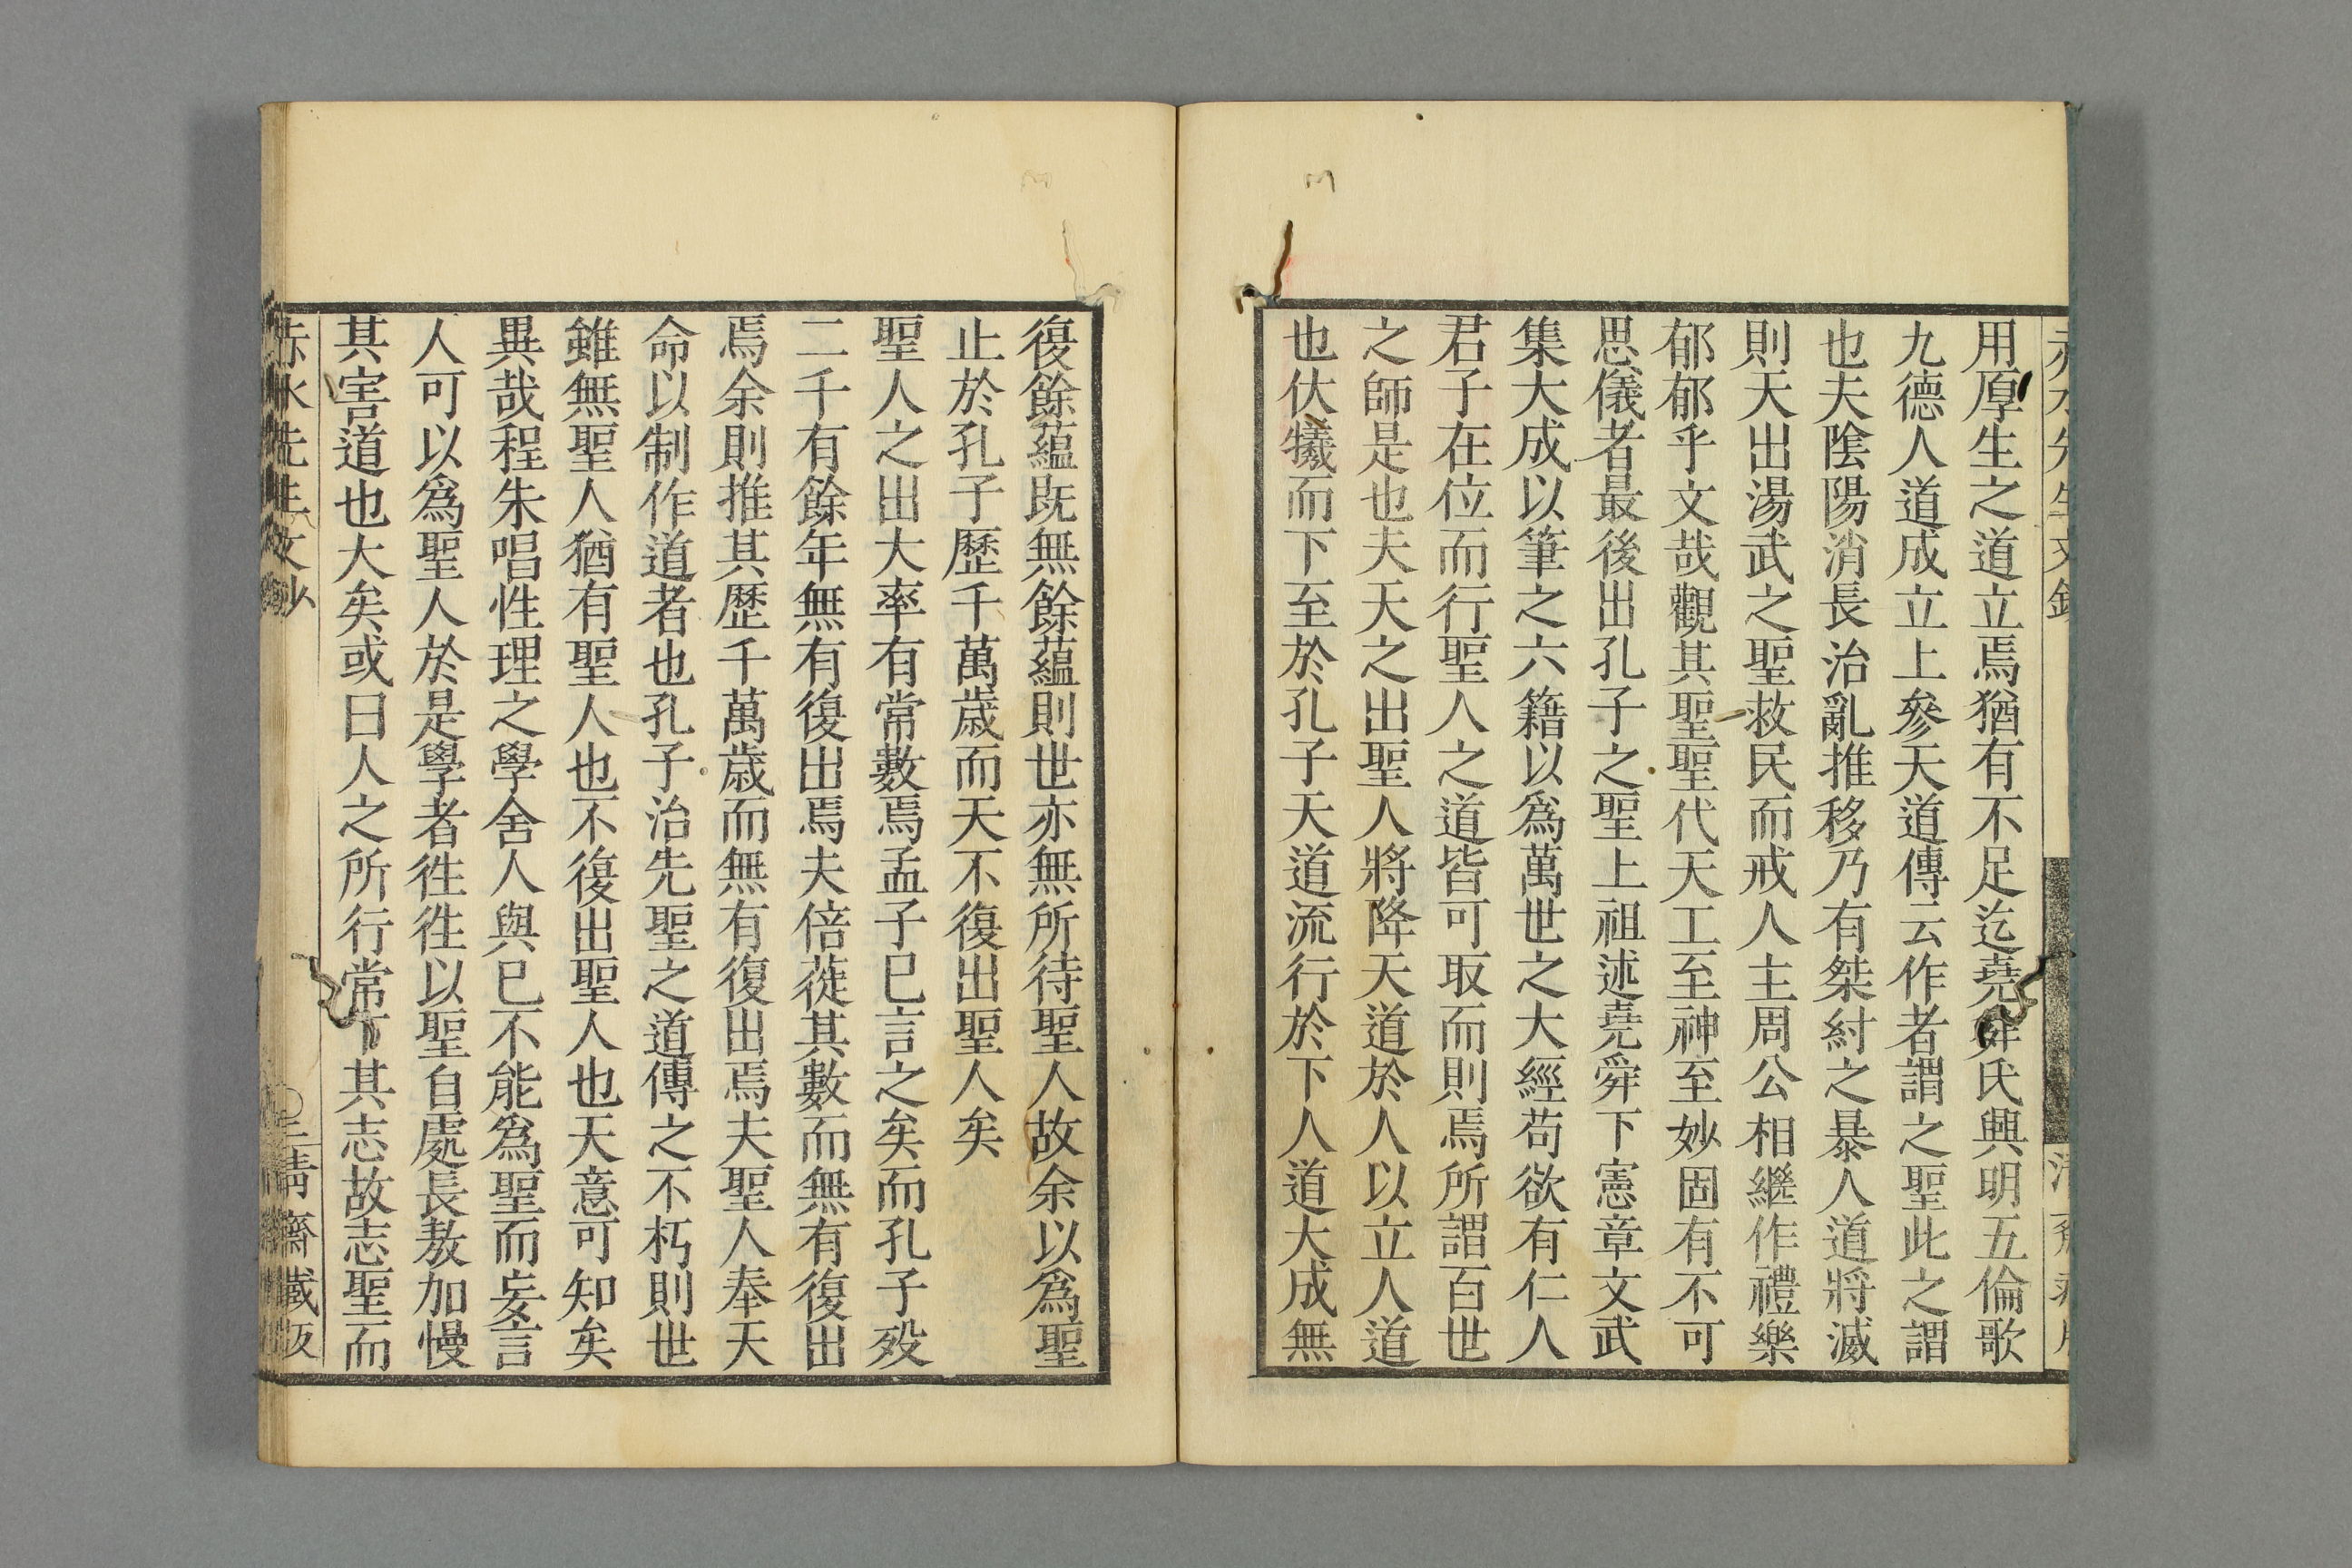 用厚生之道立焉猶有不足迄堯舜氏興明五倫歌
九德人道成立上參天道傳云作者謂之聖此之謂
也夫陰陽消長治亂推移乃有桀紂之暴人道將滅
則天出湯武之聖救民而戒人主周公相繼作禮樂
郁郁乎文哉觀其聖聖代天工至神至妙固有不可
思儀者最後出孔子之聖上祖述堯舜下憲章文武
集大成以筆之六籍以爲萬世之大經苟欲有仁人
君子在位而行聖人之道皆可取而則焉所謂百世
之師是也夫天之出聖人將降天道於人以立人道
也伏犧而下至於孔子天道流行於下人道大成無
復餘蘊既無餘蘊則世亦無所待聖人故余以爲聖
止於孔子歷千萬歳而天不復出聖人矣
聖人之出大率有常數焉孟子已言之矣而孔子歿
二千有餘年無有復出焉夫倍蓰其數而無有復出
焉余則推其歴千萬歳而無有復出焉夫聖人奉天
命以制作道者也孔子治先聖之道傳之不朽則世
雖無聖人猶有聖人也不復出聖人也天意可知矣
異哉程朱唱性理之學舍人與已不能爲聖而妄言
人可以爲聖人於是學者徃徃以聖自處長敖加慢
其害道也大矣或曰人之所行常下其志故志聖而
赤水先生文鈔
三
靜齋藏版